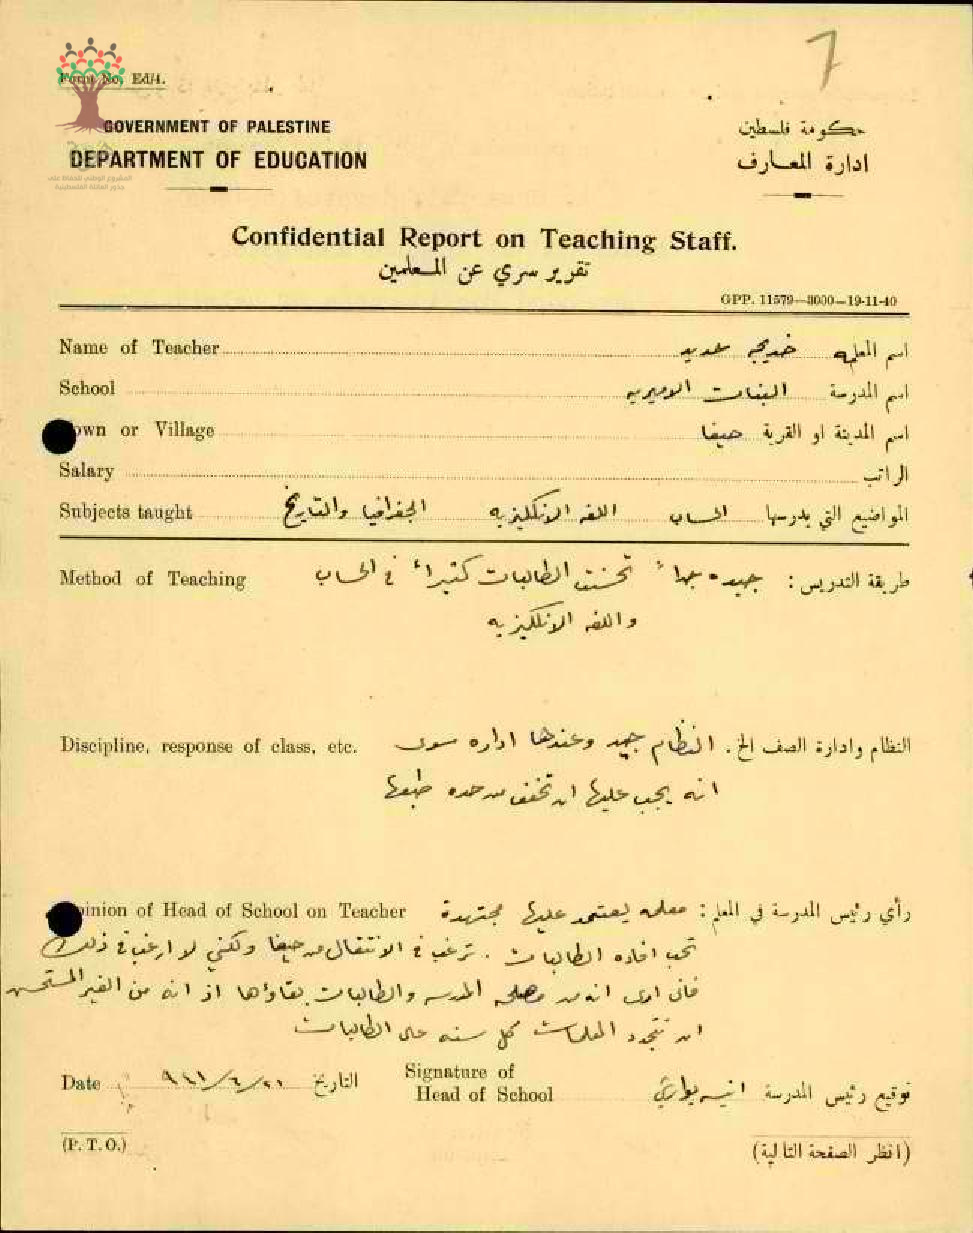 7
Form No. Ed/4.
GOVERNMENT OF PALESTINE
حكومة فلسطين
DEPARTMENT OF EDUCATION
ادارة المعارف
المشروع الوطني للحفاظ على
جذور العائلة الفلسطينية
Confidential Report on Teaching Staff.
تقرير سري عن المعلمين
GPP. 11579—3000—19-11-40
Name of Teacher خديجه اسم المعلمه
School البنات الاميريه اسم المدرسة
Town or Village حيفا اسم المدينة او القرية
Salary الراتب
Subjects taught المواضيع التي يدرسها الحساب اللغه الانكليزيه الجغرافيا والتاريخ
Method of Teaching طريقة التدريس : جيده جداً تحسنت الطالبات كثيراً في الحساب
واللغه الانكليزيه
Discipline, response of class, etc. النظام وادارة الصف الخ. النظام جيد وعندها اداره سوى
انه يجب عليها ان تخفف من حده طبعها
Opinion of Head of School on Teacher رأي رئيس المدرسة في المعلم : معلمه يعتمد عليها مجتهدة
تحب افاده الطالبات . ترغب في الانتقال من حيفا ولكني لا ارغب في ذلك
فاني ارى انه من مصلحه المدرسه والطالبات بقاؤها اذ انه من الغير المستحسن
ان تتجدد المعلمات كل سنه على الطالبات
Date التاريخ
Signature of
Head of School توقيع رئيس المدرسة انيسه
(P. T. O.) (انظر الصفحة التالية)